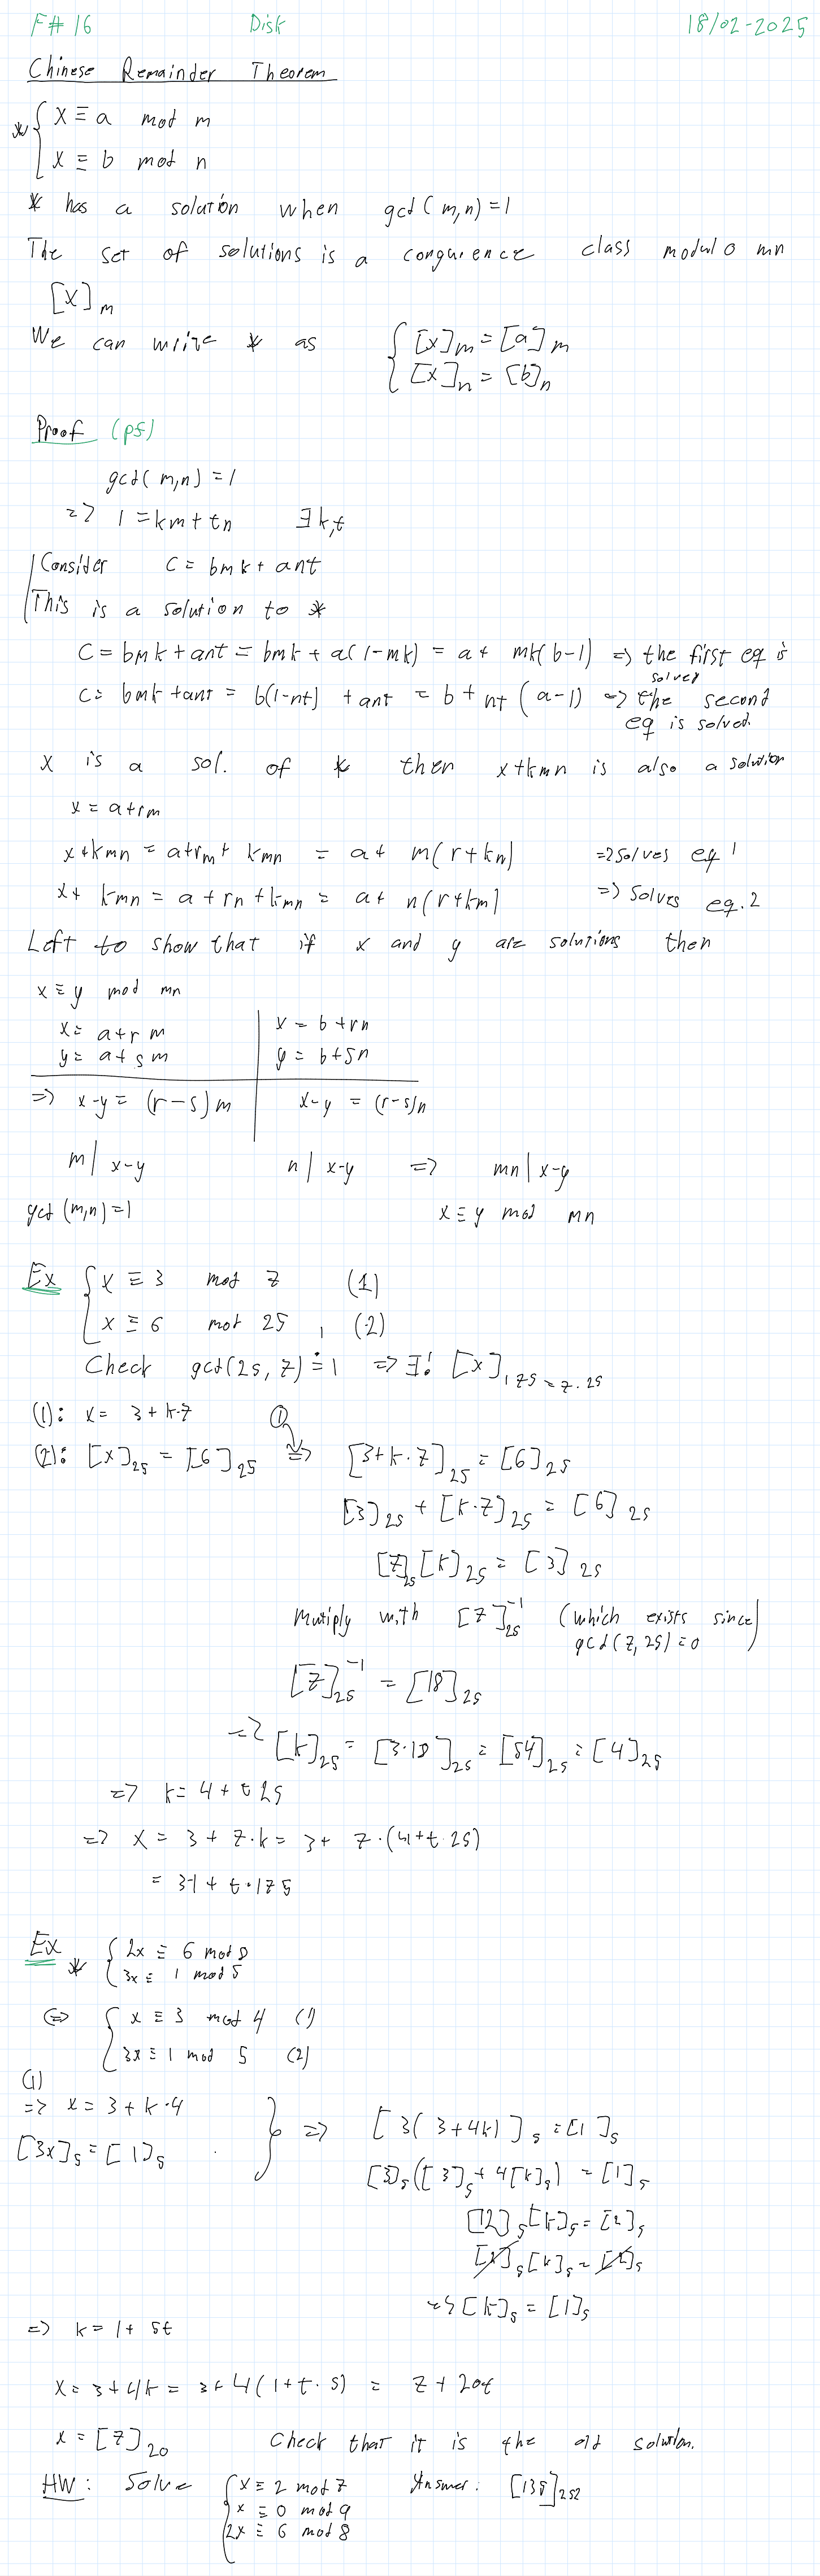 F# 16 Disk 18/02-2025
Chinese Remainder Theorem
* { x ≡ a mod m
x ≡ b mod n
* has a solution when gcd(m,n)=1
The set of solutions is a congurence class modulo mn
[x]m
We can write * as { [x]m = [a]m
[x]n = [b]n
Proof (pf)
gcd(m,n)=1
=> 1 = km + tn ∃k,t
Consider c = bmk + ant
This is a solution to *
c = bmk + ant = bmk + a(1-mk) = a + mk(b-1) => the first eq is solved
c = bmk + ant = b(1-nt) + ant = b + nt(a-1) => the second eq is solved.
x is a sol. of * then x+kmn is also a solution
x = a+rm
x+kmn = a+rm+kmn = a+ m(r+kn) => solves eq 1
x+ kmn = a+rn+kmn = a+ n(r+km) => solves eq. 2
Left to show that if x and y are solutions then
x ≡ y mod mn
x = a+r m | x = b+rn
y = a+s m | y = b+sn
=> x-y = (r-s)m | x-y = (r-s)n
m | x-y n | x-y => mn | x-y
gcd(m,n)=1 x ≡ y mod mn
Ex { x ≡ 3 mod 7 (1)
x ≡ 6 mod 25, (2)
Check gcd(25, 7) = 1 => ∃! [x]175 = 7·25
(1): x = 3 + k·7 ①
(2): [x]25 = [6]25 => [3+k·7]25 = [6]25
[3]25 + [k·7]25 = [6]25
[7]25 [k]25 = [3]25
Mutiply with [7]25^-1 (which exists since gcd(7,25)=0)
[7]25^-1 = [18]25
=> [k]25 = [3·18]25 = [54]25 = [4]25
=> k = 4 + t 25
=> x = 3 + 7·k = 3 + 7·(4+t·25)
= 31 + t·175
Ex * { 2x ≡ 6 mod 8
3x ≡ 1 mod 5
<=> { x ≡ 3 mod 4 (1)
3x ≡ 1 mod 5 (2)
(1)
=> x = 3 + k·4
[3x]5 = [1]5 } => [3(3+4k)]5 = [1]5
[3]5([3]5 + 4[k]5) = [1]5
[12]5 [k]5 = [2]5
[2]5 [k]5 = [2]5
=> [k]5 = [1]5
=> k = 1 + 5t
x = 3+4k = 3+4(1+t·5) = 7 + 20t
x = [7]20 Check that it is the old solution.
HW: Solve { x ≡ 2 mod 7 Answer: [135]252
x ≡ 0 mod 9
2x ≡ 6 mod 8